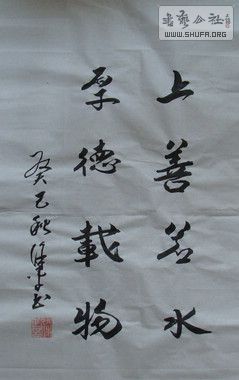 上善若水
厚德載物
癸巳秋
書藝公社
WWW.SHUFA.ORG